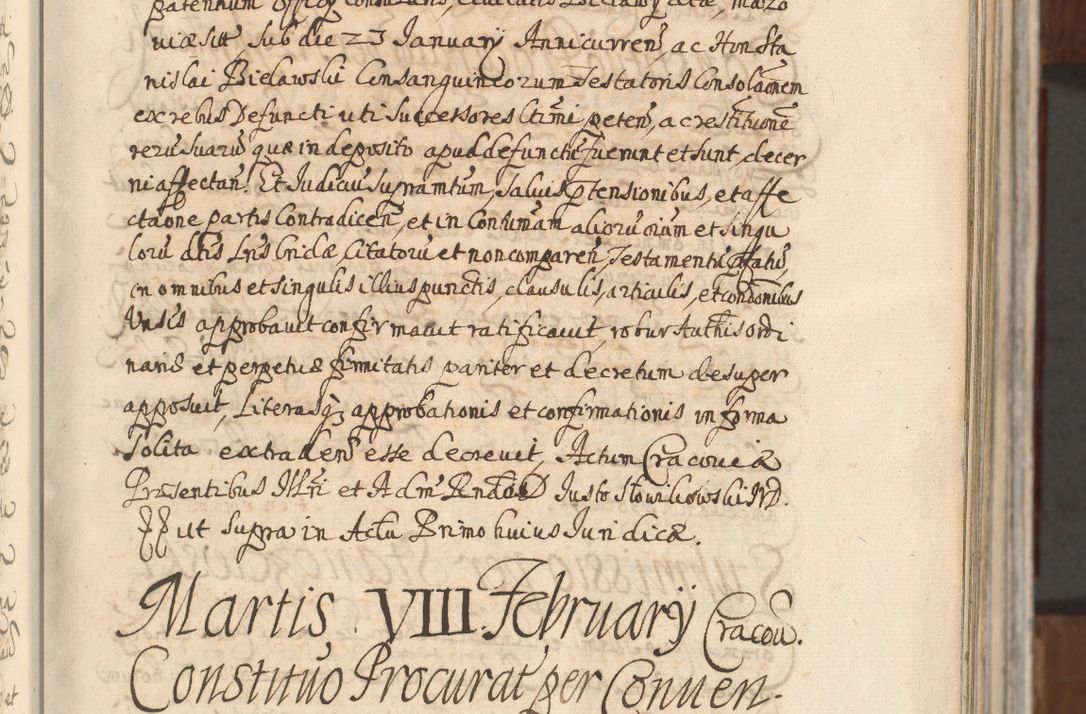 uiæ sitt, Sub die 23 January Anni curren, ac Hon Sta
nislai Bielawski Consanguineorum Testatoris Consolaõnem
ex rebus Defuncti uti Successores Ltimi, peten, ac restitutionē
rerū suarū quæ in deposito apud defunctū fuerunt et sunt, decer
ni affectan. Et Judiciū Supra mtum, Salvis ptensionibus, et affe
ctãone partis Contradicen, et in Contumãm aliorū oium et singu
lorū dtis Lris Cridæ Citatorū et non comparen, Testamentū pfatū,
in omnibus et singulis illius punctis, clausulis, articulis, et conditionibus
Unsis approbavit confirmavit ratificavit, robur Authis ordi
nariæ et perpetuæ firmitatis pariter et decretum desuper
apposuit, Literasq₃ approbationis et confirmationis in forma
Solita extraden esse decrevit, Actum Cracoviæ
Præsentibus Illri et Adm Rndo D Justo Słowikowski JVD.
ut supra in Actu Primo huius Juridicæ.
Martis . VIII. February Cracou.
Constituo Procurat per Conuen-